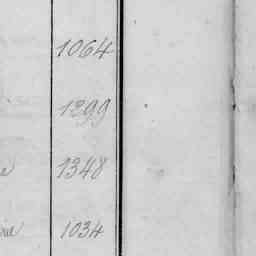 1064
1299
1348
1034